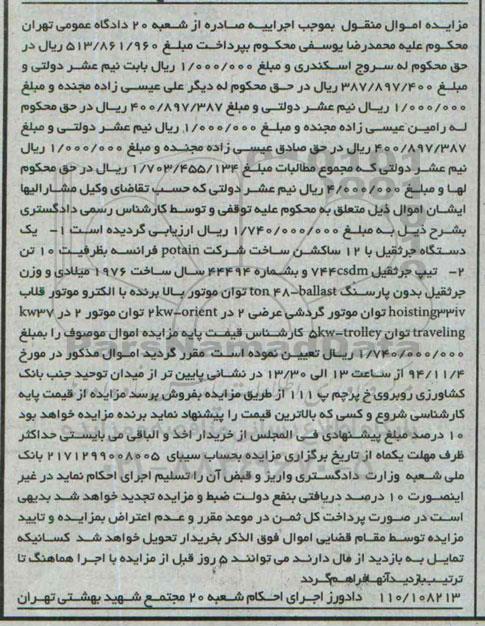 مزایده اموال منقول بموجب اجراییه صادره از شعبه ۲۰ دادگاه عمومی تهران
محکوم علیه محمدرضا یوسفی محکوم بپرداخت مبلغ ۵۱۳/۸۶۱/۹۶۰ ریال در
حق محکوم له سروج اسکندری و مبلغ ۱/۰۰۰/۰۰۰ ریال بابت نیم عشر دولتی و
مبلغ ۳۸۷/۸۹۷/۴۰۰ ریال در حق محکوم له دیگر علی عیسی زاده مجنده و مبلغ
۱/۰۰۰/۰۰۰ ریال نیم عشر دولتی و مبلغ ۴۰۰/۸۹۷/۳۸۷ ریال در حق محکوم
له رامین عیسی زاده مجنده و مبلغ ۱/۰۰۰/۰۰۰ ریال نیم عشر دولتی و مبلغ
۴۰۰/۸۹۷/۳۸۷ ریال در حق صادق عیسی زاده مجنده و مبلغ ۱/۰۰۰/۰۰۰ ریال
نیم عشر دولتی که مجموع مطالبات مبلغ ۱/۷۰۳/۴۵۵/۱۳۴ ریال در حق محکوم
لها و مبلغ ۴/۰۰۰/۰۰۰ ریال نیم عشر دولتی که حسب تقاضای وکیل مشار الیها
ایشان اموال ذیل متعلق به محکوم علیه توقفی و توسط کارشناس رسمی دادگستری
بشرح ذیل به مبلغ ۱/۷۴۰/۰۰۰/۰۰۰ ریال ارزیابی گردیده است ۱- یک
دستگاه جرثقیل با ۱۲ ساکشن ساخت شرکت potain فرانسه بظرفیت ۱۰ تن
۲- تیپ جرثقیل ۷۴۴csdm و بشماره ۴۴۴۹۴ سال ساخت ۱۹۷۶ میلادی و وزن
جرثقیل بدون پارسنگ ton ۴۸-ballast توان موتور بالا برنده با الکترو موتور قلاب
hoisting۳۳iv توان موتور گردشی عرضی ۲ در ۲kw-orient توان موتور ۲ در kw۳۷
traveling توان ۵kw-trolley کارشناس قیمت پایه مزایده اموال موصوف را بمبلغ
۱/۷۴۰/۰۰۰/۰۰۰ ریال تعیین نموده است مقرر گردید اموال مذکور در مورخ
۹۴/۱۱/۴ از ساعت ۱۳ الی ۱۳/۳۰ در نشانی پایین تر از میدان توحید جنب بانک
کشاورزی روبروی خ پرچم پ ۱۱۱ از طریق مزایده بفروش برسد مزایده از قیمت پایه
کارشناسی شروع و کسی که بالاترین قیمت را پیشنهاد نماید برنده مزایده خواهد بود
۱۰ درصد مبلغ پیشنهادی فی المجلس از خریدار اخذ و الباقی می بایستی حداکثر
ظرف مهلت یکماه از تاریخ برگزاری مزایده بحساب سیبای ۲۱۷۱۲۹۹۰۰۸۰۰۵ بانک
ملی شعبه وزارت دادگستری واریز و قبض آن را تسلیم اجرای احکام نماید در غیر
اینصورت ۱۰ درصد دریافتی بنفع دولت ضبط و مزایده تجدید خواهد شد بدیهی
است در صورت پرداخت کل ثمن در موعد مقرر و عدم اعتراض بمزایده و تایید
مزایده توسط مقام قضایی اموال فوق الذکر بخریدار تحویل خواهد شد کسانیکه
تمایل به بازدید از مال دارند می توانند ۵ روز قبل از مزایده با اجرا هماهنگ تا
ترتیب بازدید آنها فراهم گردد
۱۱۰/۱۰۸۲۱۳ دادورز اجرای احکام شعبه ۲۰ مجتمع شهید بهشتی تهران